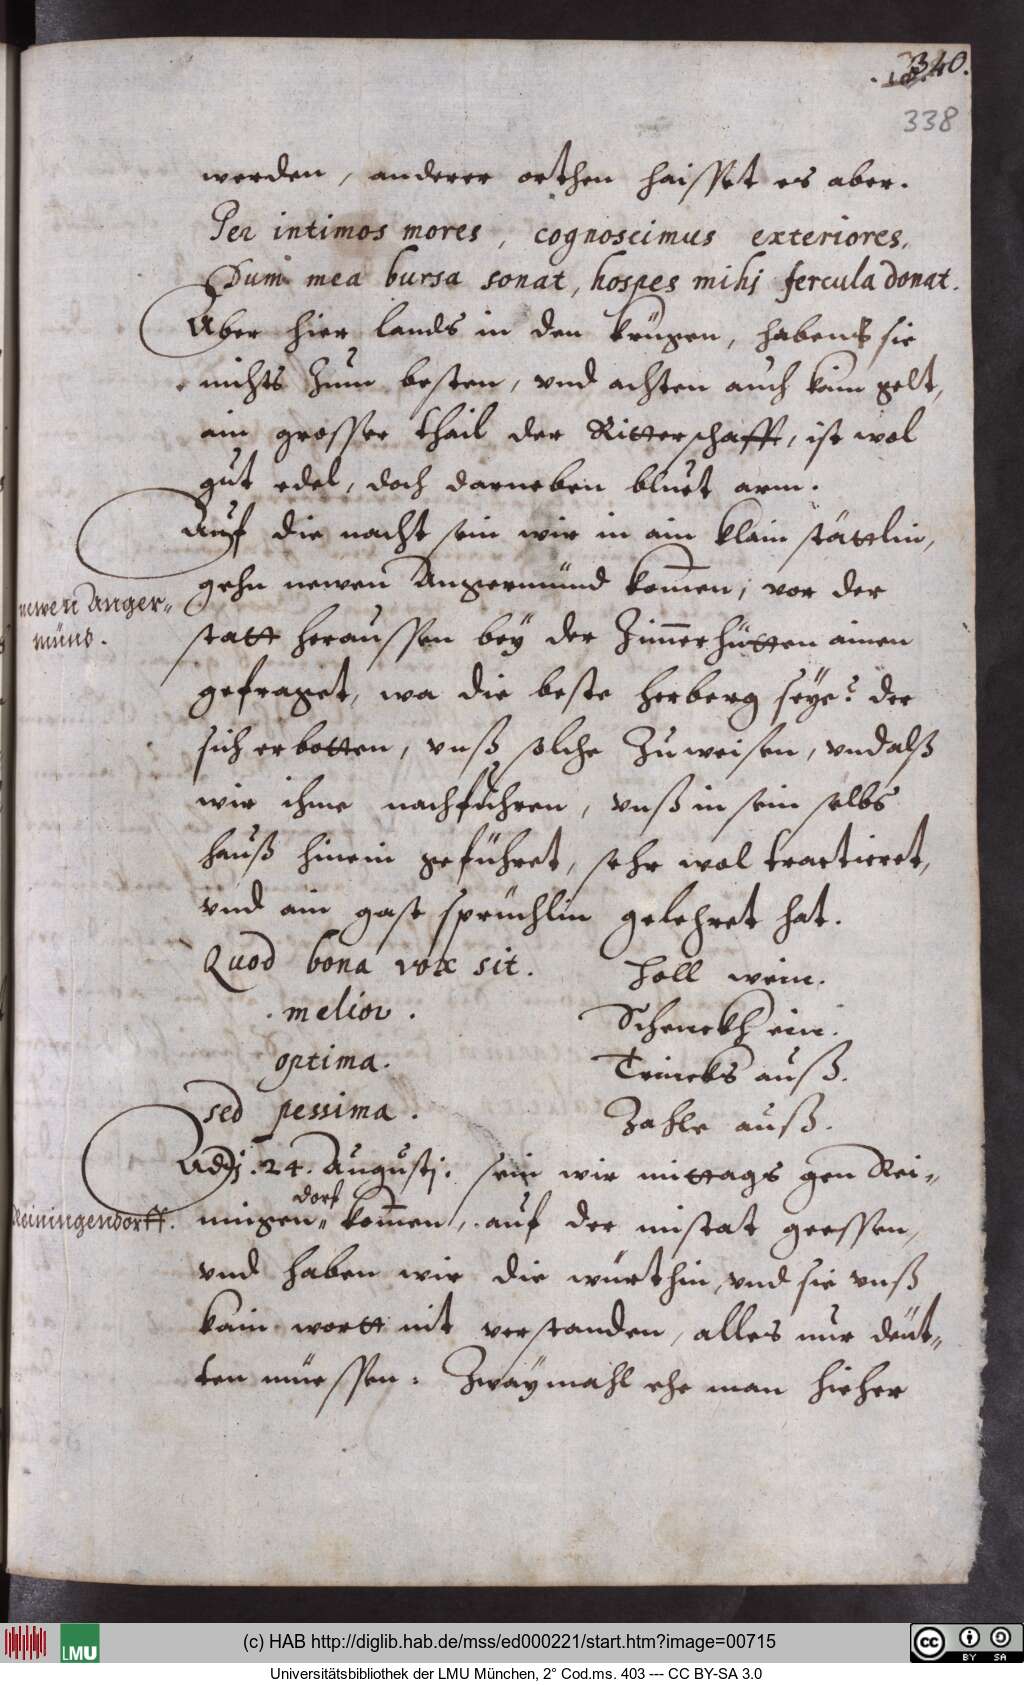 340.
338
werden, anderer orthen haisset es aber.
Per intimos mores, cognoscimus exteriores,
Dum mea bursa sonat, hospes mihj fercula donat.
Aber hier lands in den krügen, habens sie
nichts zum besten, vnd achten auch kain gelt,
ain grosser thail der Ritterschafft, ist wol
gut edel, doch darneben bluet arm.
Auf die nacht sein wir in ain klain stättlin,
gehn newen Angermünd kom̅en, vor der
newen Anger-
münd.
statt heraussen bey der Zim̅erhütten ainen
gefraget, wa die beste herberg seye? der
sich erbotten, vnß solche Zuweisen, vnd alß
wir ihme nachfuhren, vnß in sein selbs
hauß hinein geführet, sehr wol tractieret,
vnd ain gast sprüchlin gelehret hat.
Quod bona vox sit. Holl wein.
melior. Schenckh ein.
optima. Trincks auß.
sed pessima. Zahle auß.
Adj. 24. Augustj. sein wir mittags gen Rei-
Reiningendorff.
ningen dorf kom̅en, auf der mistat geessen,
vnd haben wir die würthin, vnd sie vnß
kain wortt nit verstanden, alles nur deüt-
ten müessen: Zwaymahl ehe man hieher
(c) HAB http://diglib.hab.de/mss/ed000221/start.htm?image=00715
LMU
CC BY SA
Universitätsbibliothek der LMU München, 2° Cod.ms. 403 --- CC BY-SA 3.0